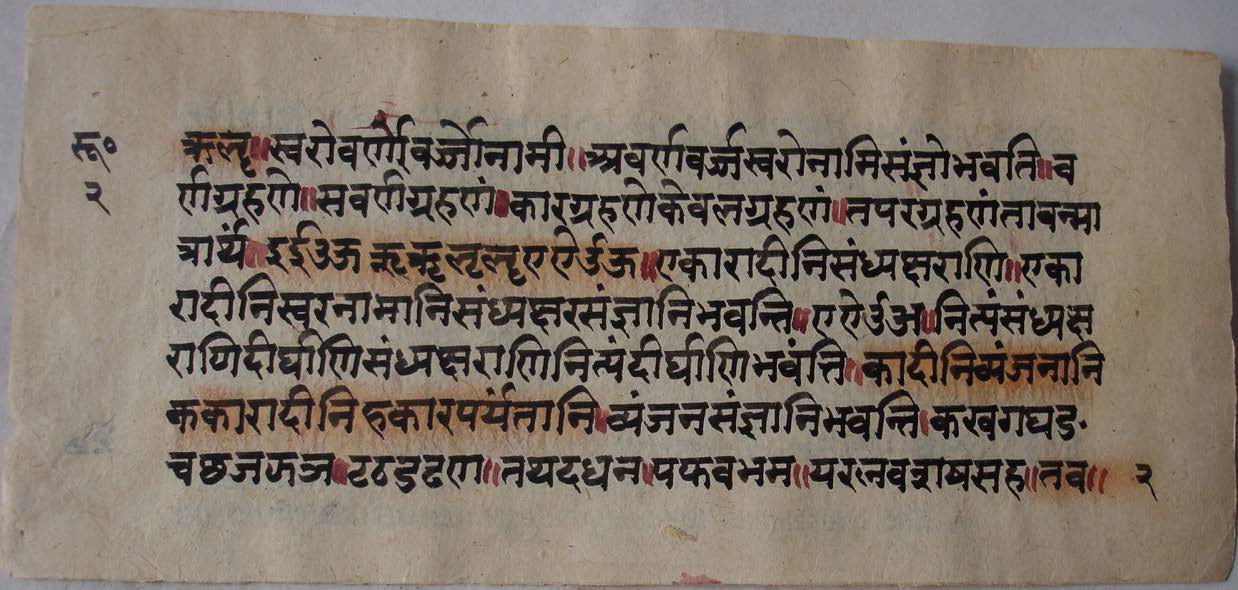 रू०
२
ऋलृ॥स्वरोवर्णोवर्ज्जोनामी॥अवर्णवर्ज्जस्वरोनामिसंज्ञोभवति॥व
र्णग्रहणे॥सवर्णग्रहणं॥कारग्रहणेकेवलग्रहणं॥तपरग्रहणंतावन्मा
त्रार्थं॥इईउऊऋॠलृॡएऐ॥एकारादीनिसंध्यक्षराणि॥एका
रादीनिस्वरनामानिसंध्यक्षरसंज्ञानिभवन्ति॥एऐ॥नित्यंसंध्यक्ष
राणिदीर्घाणिसंध्यक्षराणिनित्यंदीर्घाणिभवंत्ति॥कादीनिव्यंजनानि
ककारादीनिहकारपर्यंतानि॥व्यंजनसंज्ञानिभवन्ति॥कखगघङ॰
चछजझञ॥टठडढण॥तथदधन॥पफवभम॥यरलवशषसह॥तव॥
२